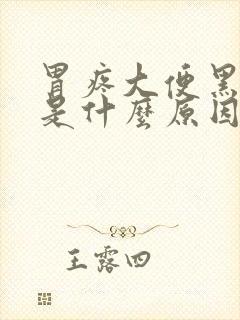 胃疼大便黑
是什麼原因
王露四